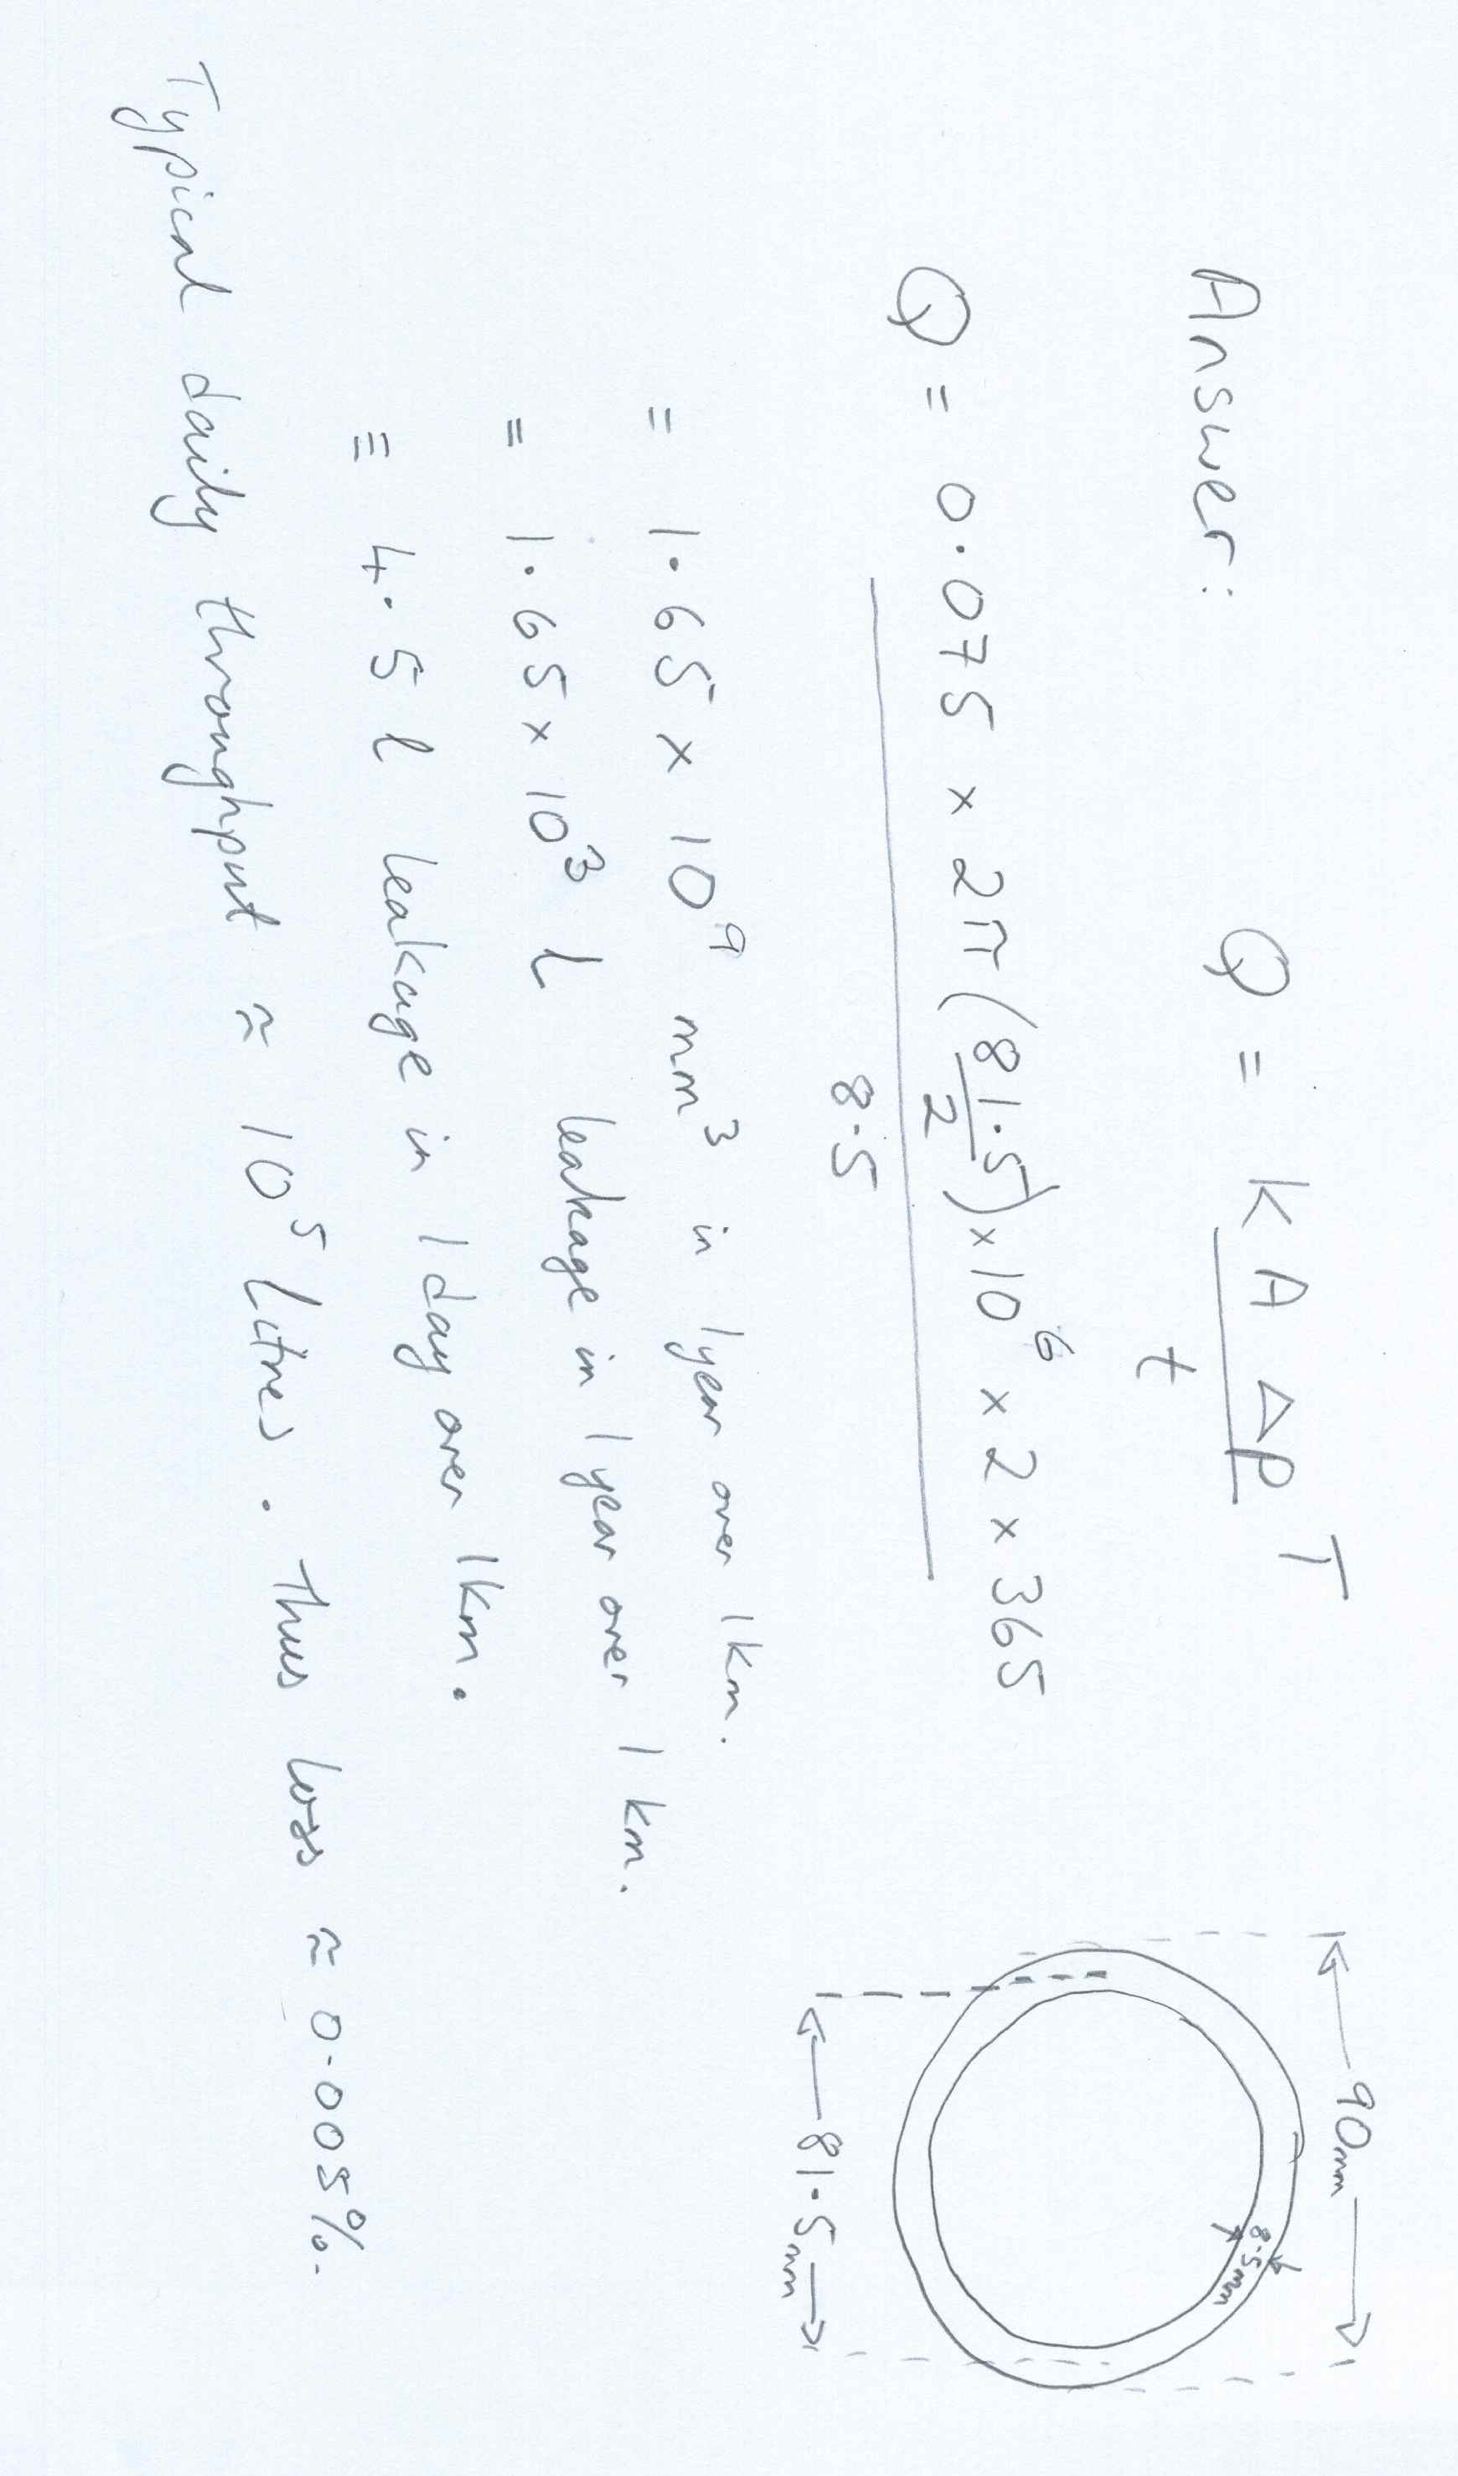 Answer: Q = K A ΔP T
t
Q = 0.075 × 2π(81.5/2) × 10⁶ × 2 × 365
8.5
= 1.65 × 10⁹ mm³ in 1 year over 1 km.
= 1.65 × 10³ l leakage in 1 year over 1 km.
≡ 4.5 l leakage in 1 day over 1 km.
Typical daily throughput ≈ 10⁵ litres. Thus loss ≈ 0.005%.
90mm
8.5mm
81.5mm